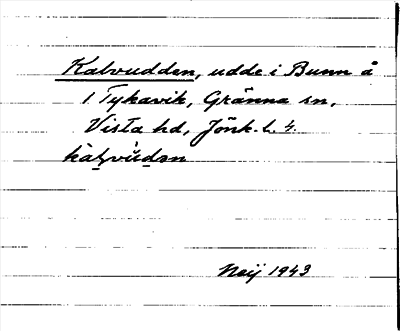 Kalvudden, udde i Bunn å
1 Tykavik, Gränna sn,
Vista hd, Jönk. l. 4.
kàl̥vùdən
Neij 1943